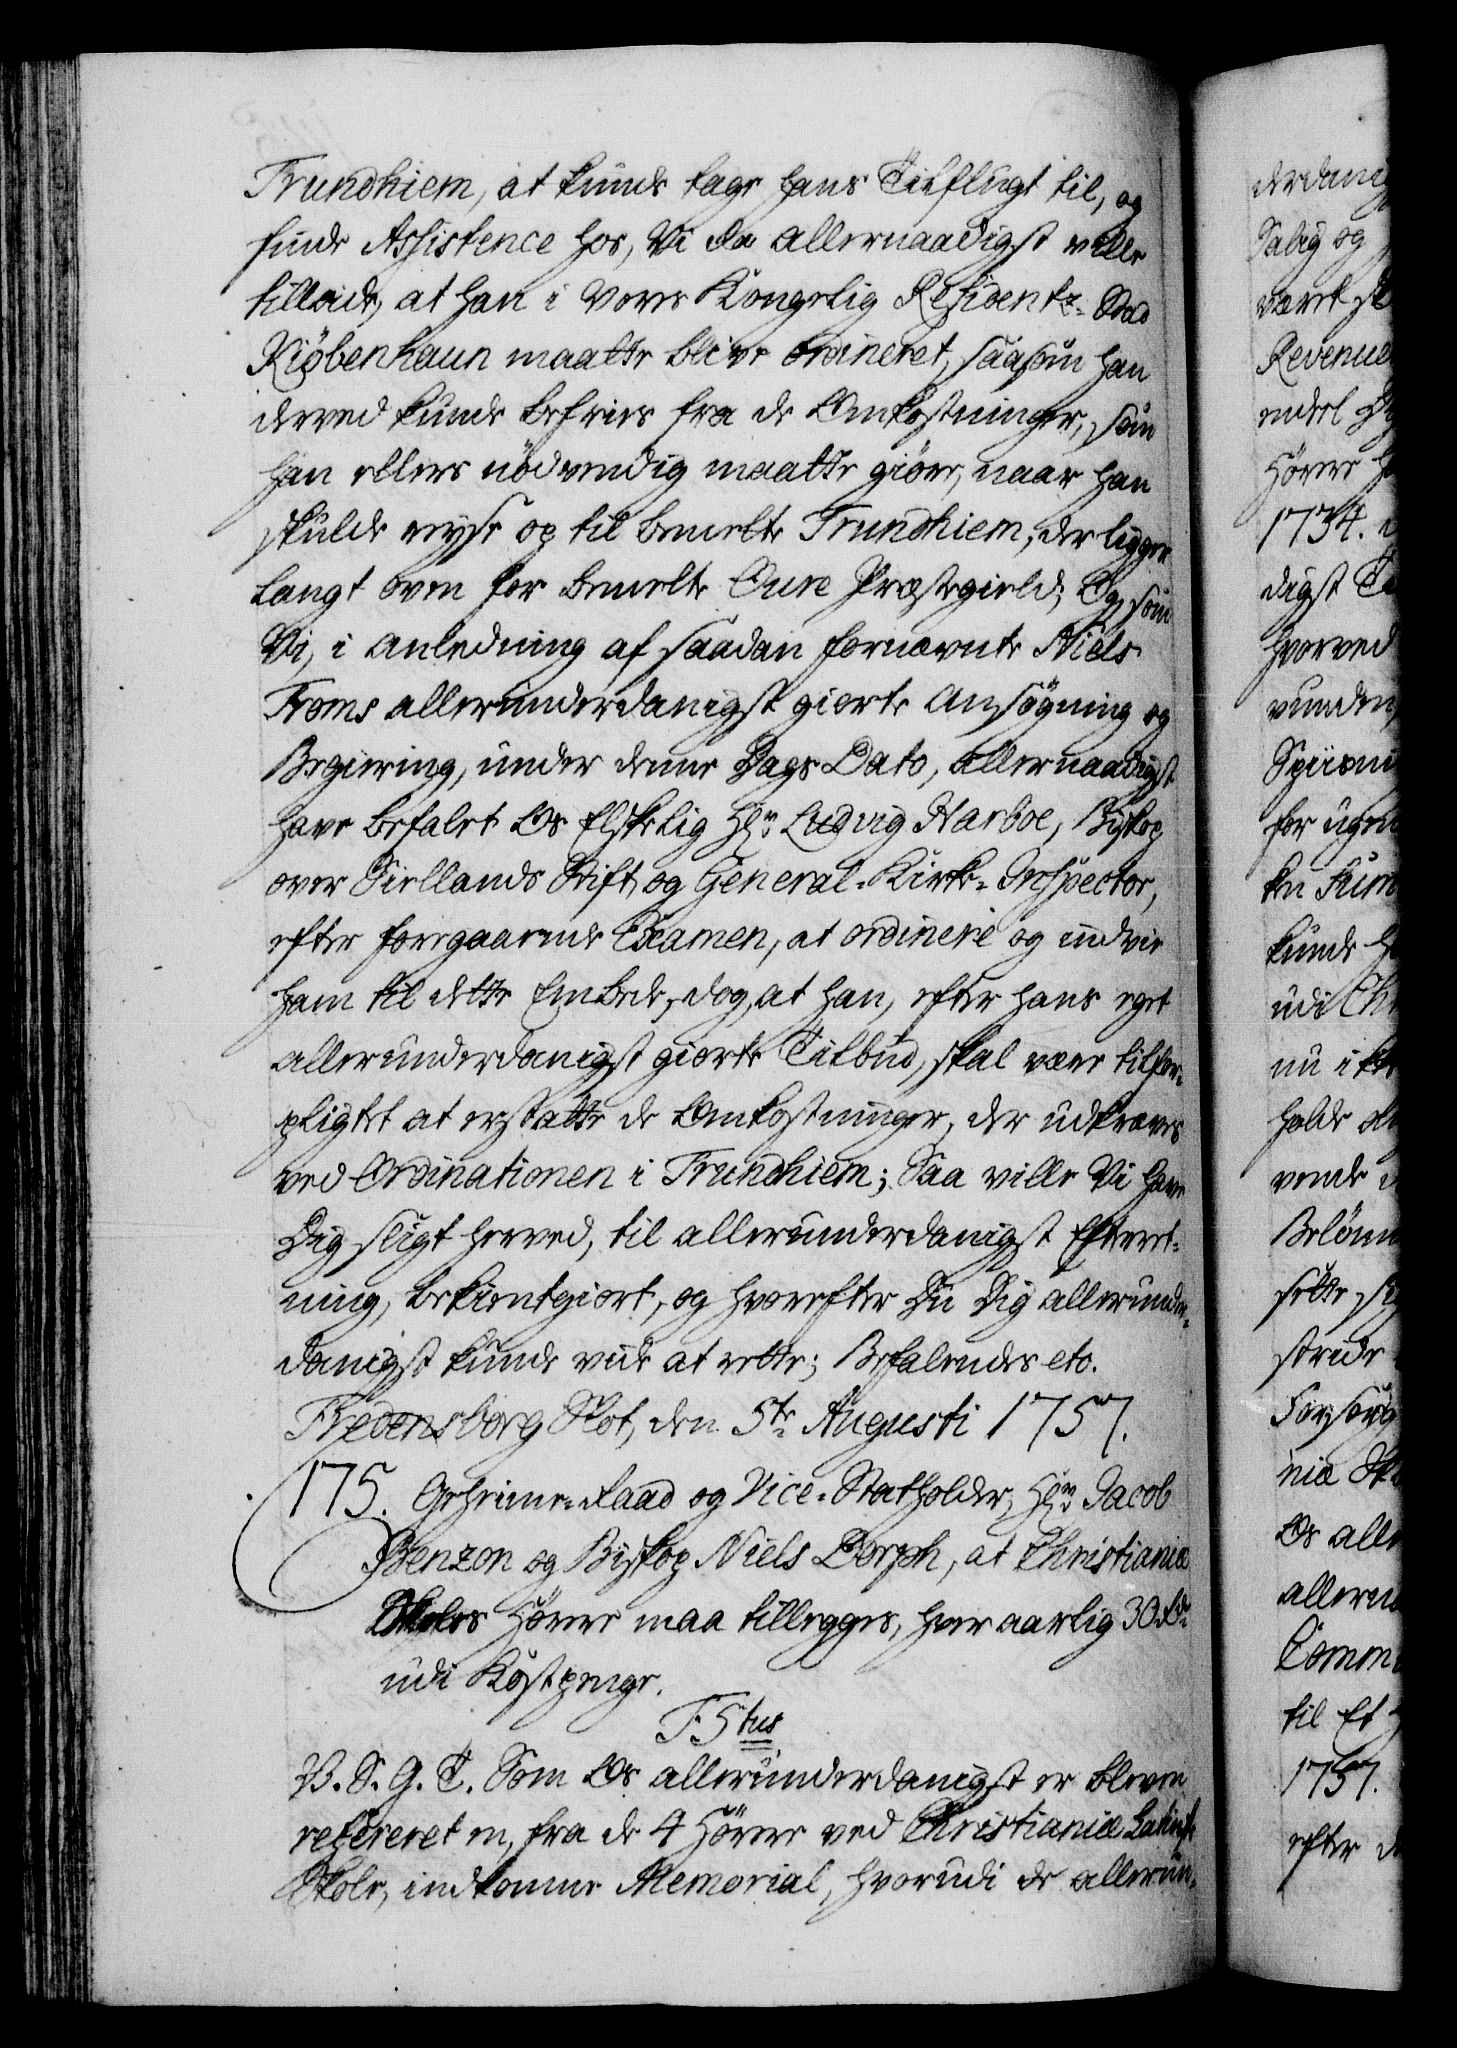 Trundhiem, at kunde tage hans Tilflugt til, og
finde Assistence hos, Vi da allernaadigst ville
tillade, at han i Vores Kongelig Residentz-Stad
Kiøbenhaun maatte blive ordineret, saasom han
derved kunde befries fra de Omkostninger, som
han ellers nödvendig maatte giöre, naar han
skulde reyse op til bemelte Trundhiem, der ligger
langt oven for bemelte Oure Præstegield; Og som
Vi, i Anledning af saadan fornævnte Niels
Froms allerunderdanigst giorte Ansøgning og
Begiering, under denne Dags Dato, allernaadigst
have befalet Os Elskelig Hr. Ludvig Harboe, Biskop
over Siellands Stift og General-Kirke-Inspector,
efter foregaaende Examen, at ordinere og indvie
ham til dette Embede, dog, at han, efter hans eget
allerunderdanigst giorte Tilbud, skal være tilfor-
pligtet at erstatte de Omkostninger, der udkræves
ved Ordinationen i Trundhiem; Saa ville Vi have
Dig sligt herved, til allerunderdanigst Efterret-
ning, bekientgiort, og hvorefter Du Dig allerunder-
danigst kunde vide at rette; Befalendes etc.
Fredensborg Slot, den 5te Augusti 1757.
175. Geheime-Raad og Vice-Statholder, Hr. Jacob
Benzon og Biskop Niels Dorph, at Christiania
Skoles Hörere maa tillegges, hver aarlig 30 Rd.
udi Kostpenge.
F. 5tus
V. S. G. T. Som Os allerunderdanigst er bleven
refereret en, fra de 4 Hörere ved Christiania Latinsk
Skole, indkomne Memorial, hvorudi de allerun-